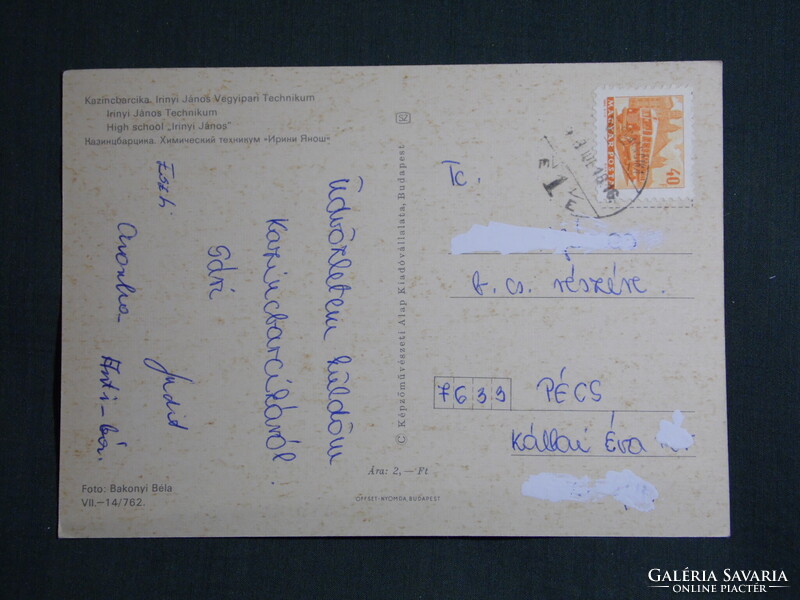 Kazincbarcika. Irinyi János Vegyipari Technikum
Irinyi János Technikum
High school „Irinyi János”
Казинцбарцика. Химический техникум «Ирини Янош»
Üdvözletem küldöm
Kazincbarcikáról!
Gári
Judit
Eszti
Foto: Bakonyi Béla
VII.—14/762.
SZ
© Képzőművészeti Alap Kiadóvállalata, Budapest
Ára: 2,— Ft
OFFSET-NYOMDA, BUDAPEST
MAGYAR POSTA
40
Tc.
b. cs. részére.
7639 PÉCS
Kállai Éva
GALÉRIA SAVARIA
ONLINE PIACTÉR